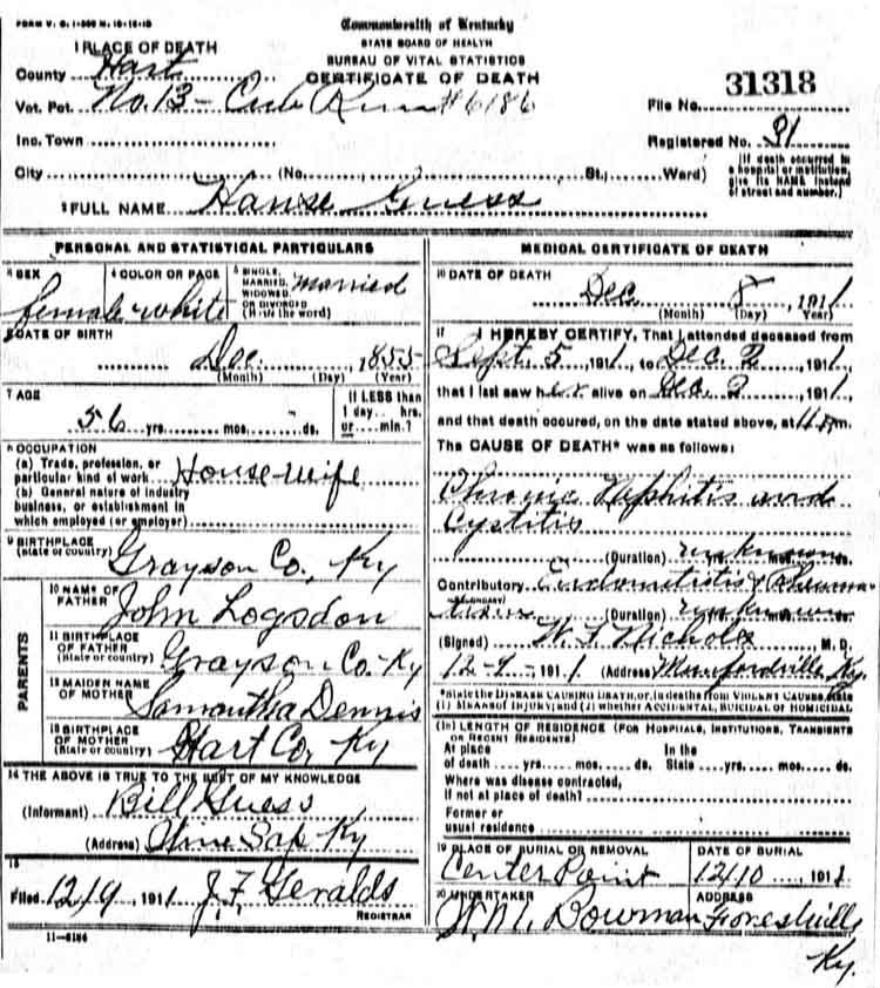 FORM V. S. 1-500 M. 10-16-10
Commonwealth of Kentucky
STATE BOARD OF HEALTH
BUREAU OF VITAL STATISTICS
CERTIFICATE OF DEATH
1 PLACE OF DEATH
County Hart
Vot. Pot. No. 13 - Cub Run #6186
File No. 31318
Ino. Town
Registered No. 91
City (No. , St.; Ward)
(If death occurred in a hospital or institution, give its NAME instead of street and number.)
2 FULL NAME Hanse Guess
PERSONAL AND STATISTICAL PARTICULARS
3 SEX female
4 COLOR OR RACE white
5 SINGLE, MARRIED, WIDOWED, OR DIVORCED (Write the word) married
6 DATE OF BIRTH
Dec. , 1855
(Month) (Day) (Year)
7 AGE
56 yrs. mos. ds.
If LESS than 1 day hrs. or min.?
8 OCCUPATION
(a) Trade, profession, or
particular kind of work House-wife
(b) General nature of industry
business, or establishment in
which employed (or employer)
9 BIRTHPLACE
(State or country) Grayson Co., Ky
PARENTS
10 NAME OF FATHER John Logsdon
11 BIRTHPLACE OF FATHER (State or country) Grayson Co. Ky
12 MAIDEN NAME OF MOTHER Samantha Dennis
13 BIRTHPLACE OF MOTHER (State or country) Hart Co, Ky
14 THE ABOVE IS TRUE TO THE BEST OF MY KNOWLEDGE
(Informant) Bill Guess
(Address) Ky
15
Filed 12/9, 1911 J. F. Geralds
REGISTRAR
11-6186
MEDICAL CERTIFICATE OF DEATH
16 DATE OF DEATH
Dec 8, 1911
(Month) (Day) Year)
17 I HEREBY CERTIFY, That I attended deceased from
Sept. 5, 1911, to Dec. 2, 1911,
that I last saw her alive on Dec. 2, 1911,
and that death occured, on the date stated above, at m.
The CAUSE OF DEATH* was as follows:
Chronic Nephitis and
Cystitis
(Duration) unknown ds.
Contributory Endometritis & Rheuma-
(SECONDARY)
tism (Duration) unknown ds.
(Signed) Nichols M. D.
12-9-1911 (Address) Munfordville Ky.
*State the DISEASE CAUSING DEATH, or, in deaths from VIOLENT CAUSES,
(1) MEANS OF INJURY; and (2) whether ACCIDENTAL, SUICIDAL OR HOMICIDAL
18 LENGTH OF RESIDENCE (FOR HOSPITALS, INSTITUTIONS, TRANSIENTS
OR RECENT RESIDENTS)
At place In the
of death yrs. mos. ds. State yrs. mos. ds.
Where was disease contracted,
If not at place of death?
Former or
usual residence
19 PLACE OF BURIAL OR REMOVAL
Center Point
DATE OF BURIAL
12/10, 1911
20 UNDERTAKER
Wm. Bowman
ADDRESS
Ky.